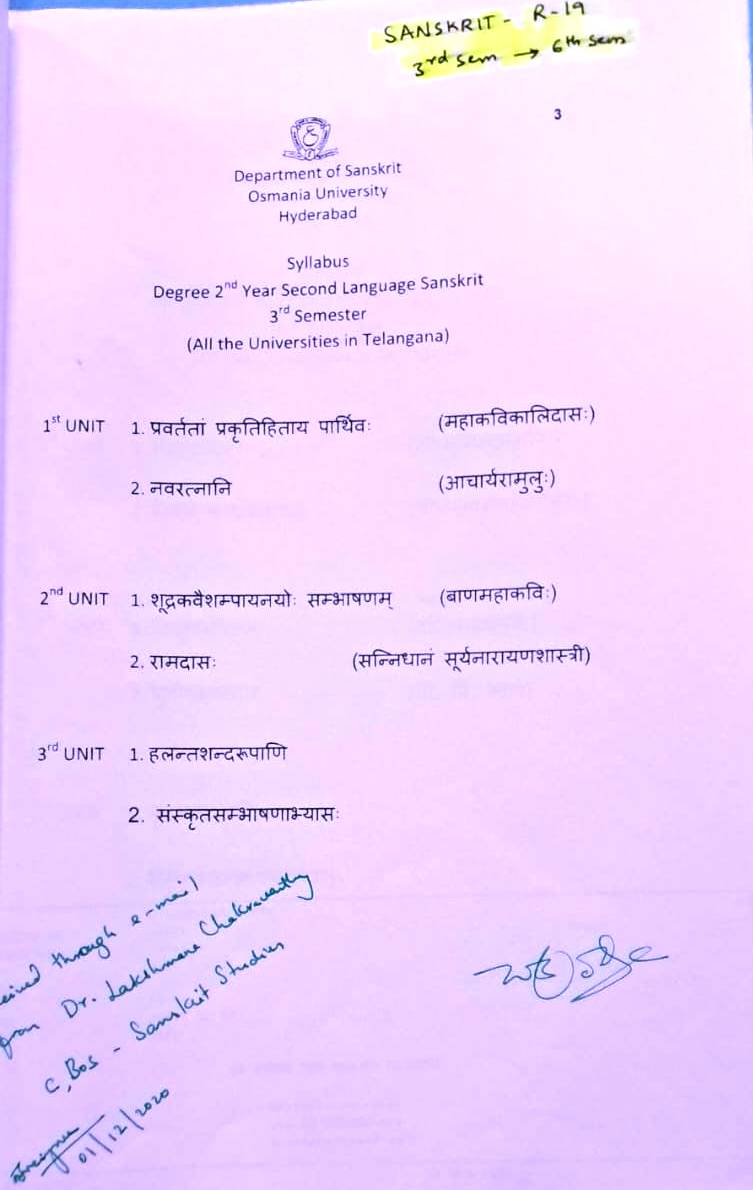 SANSKRIT - R-19
3rd Sem → 6th Sem
3
Department of Sanskrit
Osmania University
Hyderabad
Syllabus
Degree 2nd Year Second Language Sanskrit
3rd Semester
(All the Universities in Telangana)
1st UNIT 1. प्रवर्ततां प्रकृतिहिताय पार्थिवः (महाकविकालिदासः)
2. नवरत्नानि (आचार्यरामुलुः)
2nd UNIT 1. शूद्रकवैशम्पायनयोः सम्भाषणम् (बाणमहाकविः)
2. रामदासः (सन्निधानं सूर्यनारायणशास्त्री)
3rd UNIT 1. हलन्तशन्दरूपाणि
2. संस्कृतसम्भाषणाभ्यासः
through e-mail
Dr. Lakshmana Chakravarthy
C, Bos - Sanskrit Studies
01/12/2020